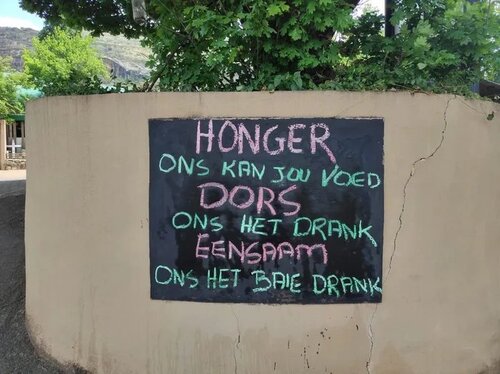 HONGER
ONS KAN JOU VOED
DORS
ONS HET DRANK
EENSAAM
ONS HET BAIE DRANK